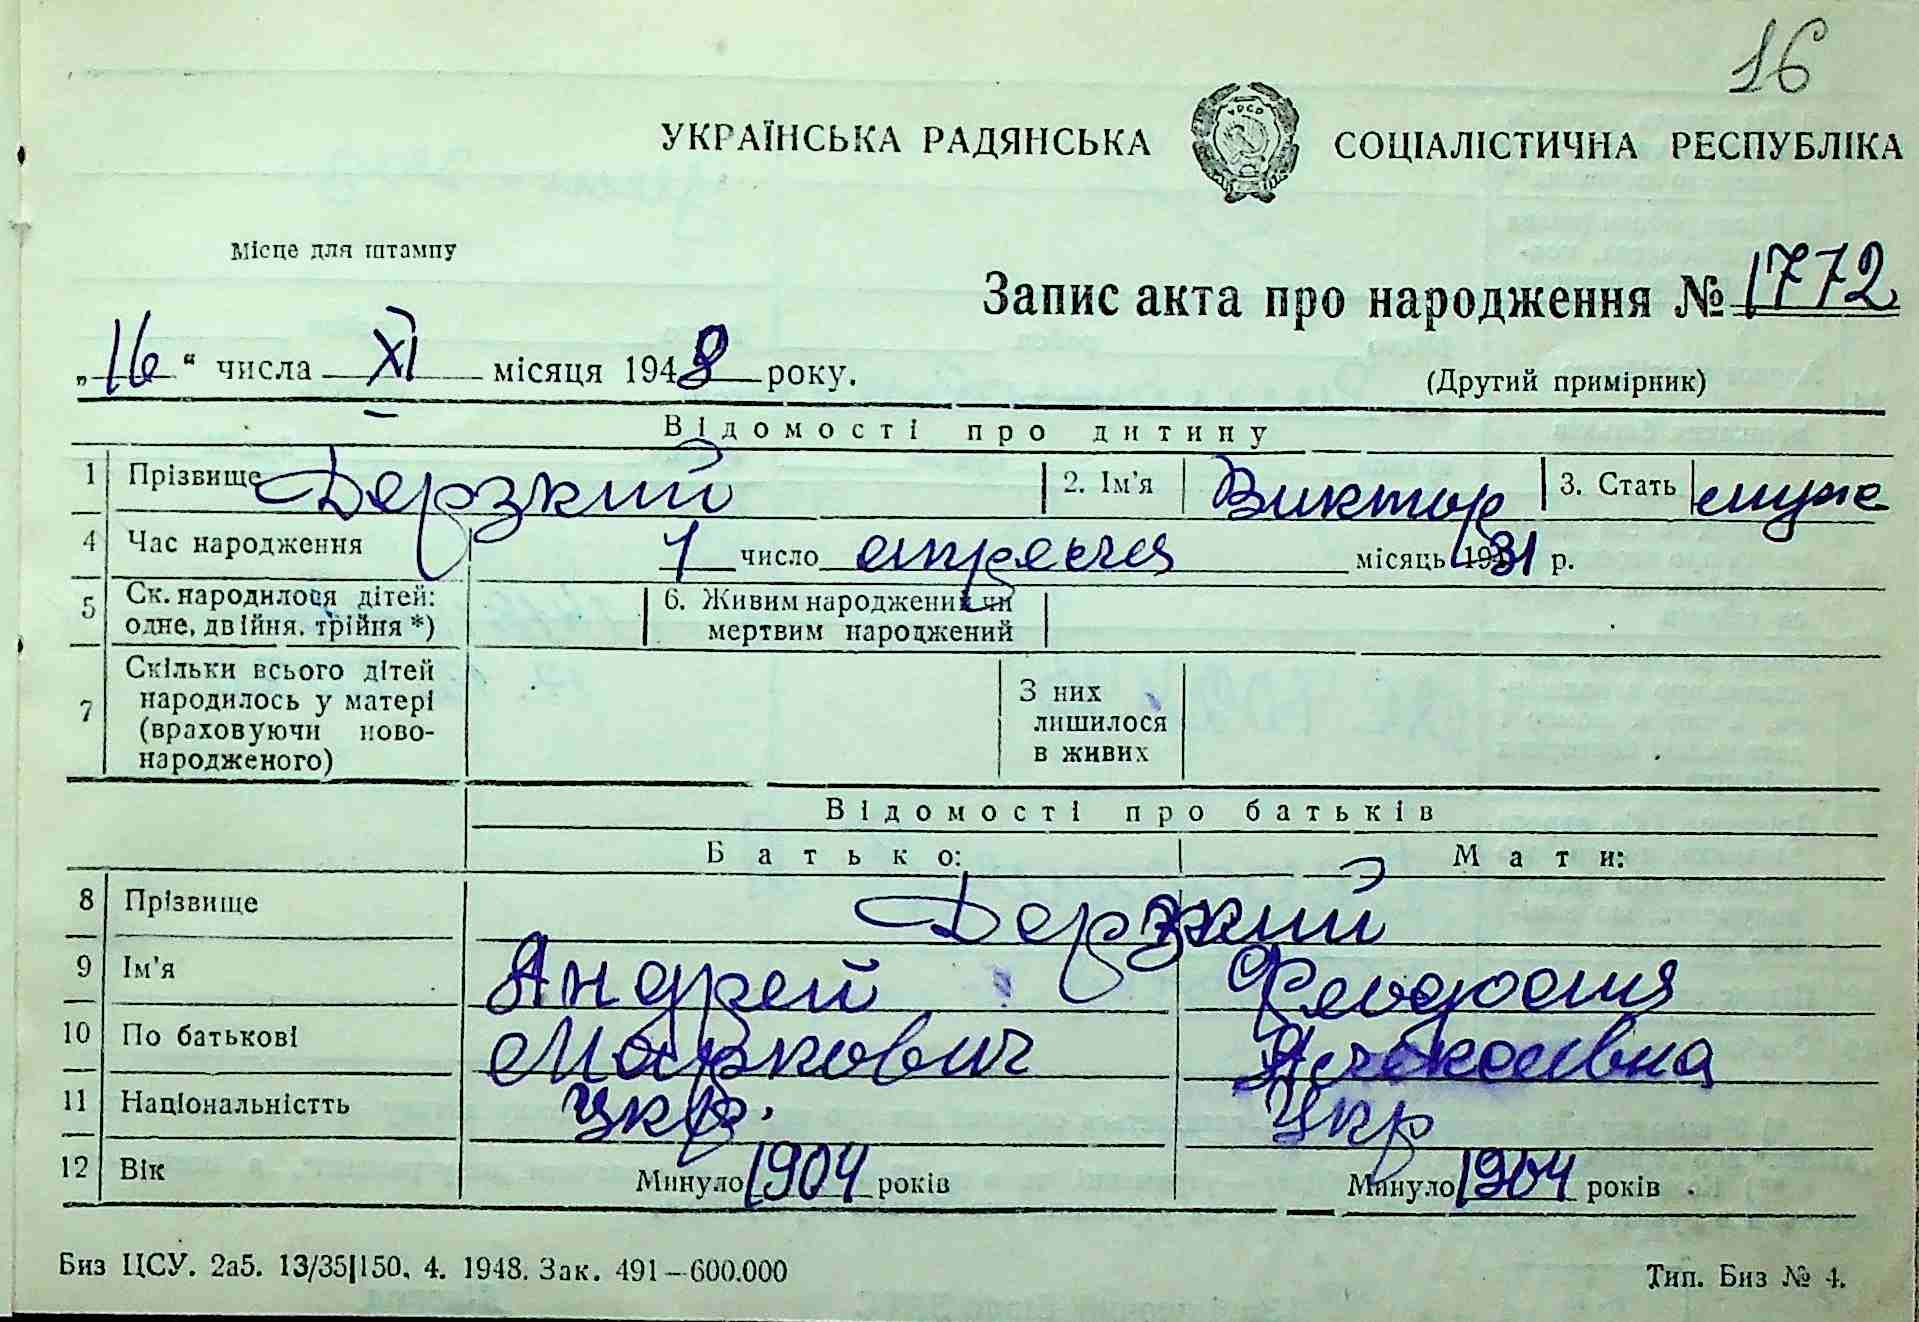 16
УКРАЇНСЬКА РАДЯНСЬКА СОЦІАЛІСТИЧНА РЕСПУБЛІКА
УРСР
Місце для штампу
Запис акта про народження № 1772
„16“ числа XI місяця 1948 року.
(Другий примірник)
Відомості про дитину
1 Прізвище Дерзкий 2. Ім'я Виктор 3. Стать муж
4 Час народження 1 число апреля місяць 1931 р.
5 Ск. народилося дітей: одне, двійня, трійня *) 6. Живим народжений чи мертвим народжений
7 Скільки всього дітей народилось у матері (враховуючи ново-народженого) З них лишилося в живих
Відомості про батьків
Батько: Мати:
8 Прізвище Дерзкий
9 Ім'я Андрей Феодосия
10 По батькові Маркович
11 Національністть укр. Укр
12 Вік Минуло 1904 років Минуло 1904 років
Биз ЦСУ. 2а5. 13/35|150, 4. 1948. Зак. 491—600.000
Тип. Биз № 4.